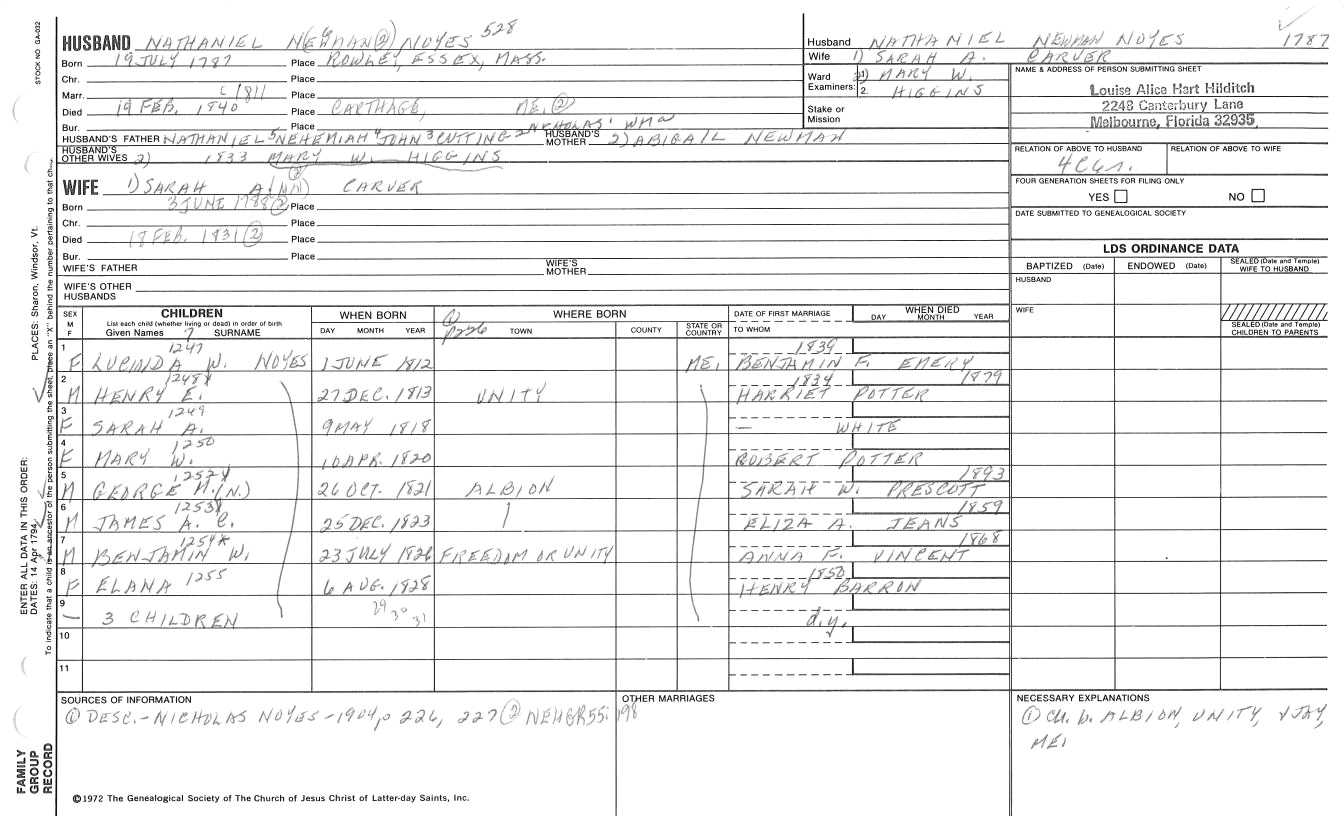 STOCK NO. GA-032
HUSBAND NATHANIEL NEWMAN (2) NOYES 528
Born 19 JULY 1787 Place ROWLEY, ESSEX, MASS.
Chr. Place
Marr. C 1811 Place
Died 19 FEB. 1840 Place CARTHAGE, ME. (2)
Bur. Place
HUSBAND'S FATHER NATHANIEL 5 NEHEMIAH 4 JOHN 3 CUTTING 2 NICHOLAS 1 WM HUSBAND'S MOTHER 2) ABIGAIL NEWMAN
HUSBAND'S OTHER WIVES 2) 1833 MARY W. HIGGINS
WIFE 1) SARAH A. (N) (2) CARVER
Born 3 JUNE 1788 (2) Place
Chr. Place
Died 18 FEB. 1831 (2) Place
Bur. Place
WIFE'S FATHER WIFE'S MOTHER
WIFE'S OTHER HUSBANDS
Husband NATHANIEL NEWMAN NOYES 1787
Wife 1) SARAH A. CARVER
Ward Examiners: 1. 2) MARY W.
2. HIGGINS
Stake or Mission
NAME & ADDRESS OF PERSON SUBMITTING SHEET
Louise Alice Hart Hilditch
2248 Canterbury Lane
Melbourne, Florida 32935
RELATION OF ABOVE TO HUSBAND RELATION OF ABOVE TO WIFE
FOUR GENERATION SHEETS FOR FILING ONLY
YES NO
DATE SUBMITTED TO GENEALOGICAL SOCIETY
LDS ORDINANCE DATA
BAPTIZED (Date) ENDOWED (Date) SEALED (Date and Temple) WIFE TO HUSBAND
HUSBAND
WIFE
SEALED (Date and Temple) CHILDREN TO PARENTS
SEX M F
CHILDREN
List each child (whether living or dead) in order of birth
Given Names 7 SURNAME
WHEN BORN
DAY MONTH YEAR
(1) p226
WHERE BORN
TOWN COUNTY STATE OR COUNTRY
DATE OF FIRST MARRIAGE
TO WHOM
WHEN DIED
DAY MONTH YEAR
1 F LUCINDA W. NOYES 1247 1 JUNE 1812 ME. 1839 BENJAMIN F. EMERY
2 M HENRY E. 1248X 27 DEC. 1813 UNITY 1834 HARRIET POTTER 1879
3 F SARAH A. 1249 9 MAY 1818 — WHITE
4 F MARY W. 1250 10 APR. 1820 ROBERT POTTER
5 M GEORGE M. (N.) 1252X 26 OCT. 1821 ALBION SARAH W. PRESCOTT 1893
6 M JAMES A. C. 1253X 25 DEC. 1823 ELIZA A. JEANS 1859
7 M BENJAMIN W. 1254X 23 JULY 1826 FREEDOM OR UNITY ANNA F. VINCENT 1868
8 F ELANA 1255 6 AUG. 1828 1850 HENRY BARRON
9 — 3 CHILDREN 29 30 31 d.y.
10
11
SOURCES OF INFORMATION
(1) DESC.-NICHOLAS NOYES-1904, p 226, 227 (2) NEHGR 55:198
OTHER MARRIAGES
NECESSARY EXPLANATIONS
(1) CH. b. ALBION, UNITY, & JAY,
ME.
©1972 The Genealogical Society of The Church of Jesus Christ of Latter-day Saints, Inc.
ENTER ALL DATA IN THIS ORDER:
DATES: 14 Apr 1794
PLACES: Sharon, Windsor, Vt.
To indicate that a child is an ancestor of the person submitting the sheet, place an "X" behind the number pertaining to that
FAMILY GROUP RECORD